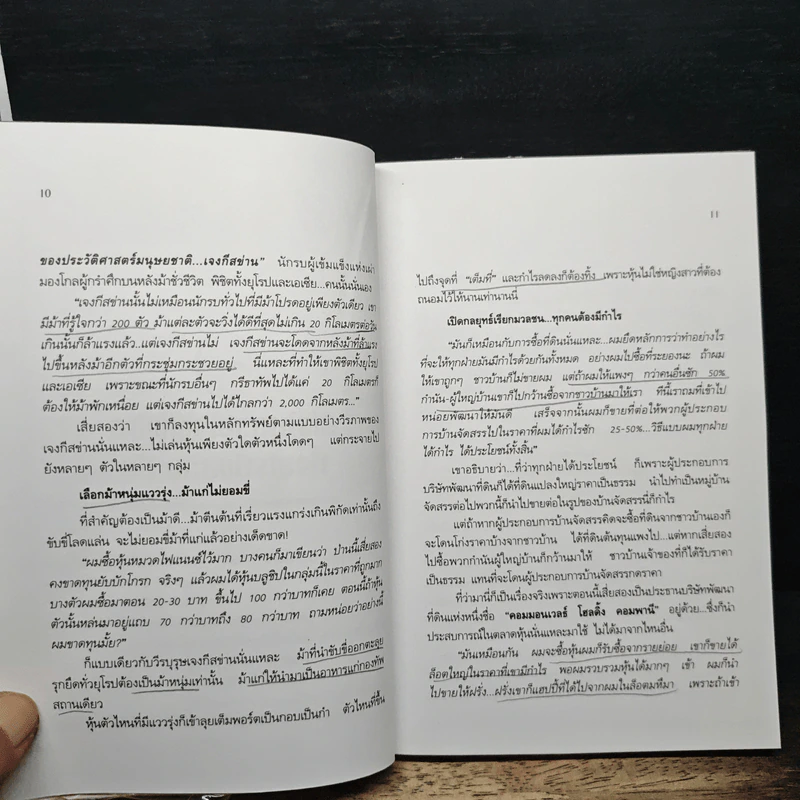 10
ของประวัติศาสตร์มนุษยชาติ...เจงกีสข่าน" นักรบผู้เข้มแข็งแห่งเผ่า
มองโกลผู้กรำศึกบนหลังม้าชั่วชีวิต พิชิตทั้งยุโรปและเอเซีย...คนนั้นนั่นเอง
"เจงกีสข่านนั้นไม่เหมือนนักรบทั่วไปที่มีม้าโปรดอยู่เพียงตัวเดียว เขา
มีม้าที่รู้ใจกว่า 200 ตัว ม้าแต่ละตัวจะวิ่งได้ดีที่สุดไม่เกิน 20 กิโลเมตรต่อวัน
เกินนั้นก็ล้าแรงแล้ว..แต่เจงกีสข่านไม่ เจงกีสข่านจะโดดจากหลังม้าที่ล้าแรง
ไปขึ้นหลังม้าอีกตัวที่กระชุ่มกระชวยอยู่ นี่แหละที่ทำให้เขาพิชิตทั้งยุโรป
และเอเซีย เพราะขณะที่นักรบอื่นๆ กรีธาทัพไปได้แค่ 20 กิโลเมตรก็
ต้องให้ม้าพักเหนื่อย แต่เจงกีสข่านไปได้ไกลกว่า 2,000 กิโลเมตร..."
เสี่ยสองว่า เขาก็ลงทุนในหลักทรัพย์ตามแบบอย่างวีรภาพของ
เจงกีสข่านนั่นแหละ...ไม่เล่นหุ้นเพียงตัวใดตัวหนึ่งโดดๆ แต่กระจายไป
ยังหลายๆ ตัวในหลายๆ กลุ่ม
เลือกม้าหนุ่มแววรุ่ง...ม้าแก่ไม่ยอมขี่
ที่สำคัญต้องเป็นม้าดี...ม้าตีนต้นที่เรี่ยวแรงแกร่งเกินพิกัดเท่านั้นถึง
ขับขี่โลดแล่น จะไม่ยอมขี่ม้าที่แก่แล้วอย่างเด็ดขาด!
"ผมซื้อหุ้นหมวดไฟแนนซ์ไว้มาก บางคนก็มาเขียนว่า ป่านนี้เสี่ยสอง
คงขาดทุนยับบักโกรก จริงๆ แล้วผมได้หุ้นบลูชิปในกลุ่มนี้ในราคาที่ถูกมาก
บางตัวผมซื้อมาตอน 20-30 บาท ขึ้นไป 100 กว่าบาทก็เคย ตอนนี้ถ้าหุ้น
ตัวนั้นหล่นมาอยู่แถบ 70 กว่าบาทถึง 80 กว่าบาท ถามหน่อยว่าอย่างนี้
ผมขาดทุนมั้ย?"
ก็แบบเดียวกับวีรบุรุษเจงกีสข่านนั่นแหละ ม้าที่นำขับขี่ออกตะลุย
รุกยึดทั่วยุโรปต้องเป็นม้าหนุ่มเท่านั้น ม้าแก่ให้นำมาเป็นอาหารแก่กองทัพ
สถานเดียว
หุ้นตัวไหนที่มีแววรุ่งก็เข้าลุยเต็มพอร์ตเป็นกอบเป็นกำ ตัวไหนที่ขึ้น
11
ไปถึงจุดที่ "เต็มที่" และกำไรลดลงก็ต้องทิ้ง เพราะหุ้นไม่ใช่หญิงสาวที่ต้อง
ถนอมไว้ให้นานเท่านานนี่
เปิดกลยุทธ์เรียกมวลชน...ทุกคนต้องมีกำไร
"มันก็เหมือนกับการซื้อที่ดินนั่นแหละ...ผมยึดหลักการว่าทำอย่างไร
ที่จะให้ทุกฝ่ายมันมีกำไรด้วยกันทั้งหมด อย่างผมไปซื้อที่ระยองนะ ถ้าผม
ให้เขาถูกๆ ชาวบ้านก็ไม่ขายผม แต่ถ้าผมให้แพงๆ กว่าคนอื่นซัก 50%
กำนัน-ผู้ใหญ่บ้านเขาก็ไปกว้านซื้อจากชาวบ้านมาให้เรา ทีนี้เราถมที่เข้าไป
หน่อยพัฒนาให้มันดี เสร็จจากนั้นผมก็ขายที่ต่อให้พวกผู้ประกอบ
การบ้านจัดสรรไปในราคาที่ผมได้กำไรซัก 25-50%...วิธีแบบผมทุกฝ่าย
ได้กำไร ได้ประโยชน์ทั้งสิ้น"
เขาอธิบายว่า...ที่ว่าทุกฝ่ายได้ประโยชน์ ก็เพราะผู้ประกอบการ
บริษัทพัฒนาที่ดินก็ได้ที่ดินแปลงใหญ่ราคาเป็นธรรม นำไปทำเป็นหมู่บ้าน
จัดสรรต่อไปพวกนี้ก็นำไปขายต่อในรูปของบ้านจัดสรรนี่ก็กำไร
แต่ถ้าหากผู้ประกอบการบ้านจัดสรรคิดจะซื้อที่ดินจากชาวบ้านเองก็
จะโดนโก่งราคาบ้างจากชาวบ้าน ได้ที่ดินต้นทุนแพงไป...แต่หากเสี่ยสอง
ไปซื้อพวกกำนันผู้ใหญ่บ้านก็กว้านมาให้ ชาวบ้านเจ้าของที่ก็ได้รับราคา
เป็นธรรม แทนที่จะโดนผู้ประกอบการบ้านจัดสรรกดราคา
ที่ว่ามานี่ก็เป็นเรื่องจริงเพราะตอนนี้เสี่ยสองเป็นประธานบริษัทพัฒนา
ที่ดินแห่งหนึ่งชื่อ "คอมมอนเวลธ์ โฮลดิ้ง คอมพานี" อยู่ด้วย...ซึ่งก็นำ
ประสบการณ์ในตลาดหุ้นนั่นแหละมาใช้ ไม่ได้มาจากไหนอื่น
"มันเหมือนกัน ผมจะซื้อหุ้นผมก็รับซื้อจากรายย่อย เขาก็ขายได้
ล็อตใหญ่ในราคาที่เขามีกำไร พอผมรวบรวมหุ้นได้มากๆ เข้า ผมก็นำ
ไปขายให้ฝรั่ง...ฝรั่งเขาก็แฮปปี้ที่ได้ไปจากผมในล็อตมหึมา เพราะถ้าเข้า